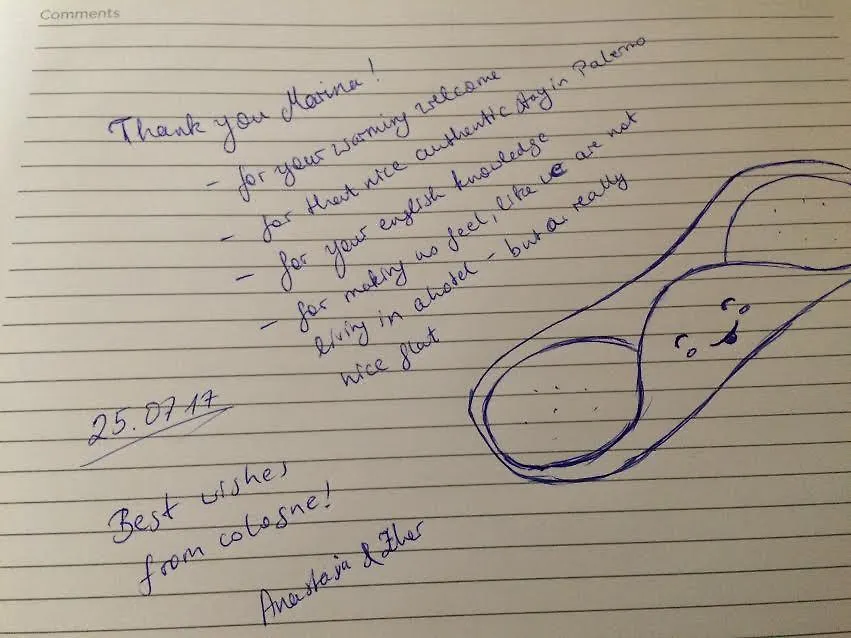 Comments
Thank you Marina!
- for your warming welcome
- for that nice authentic stay in Palermo
- for your english knowledge
- for making us feel, like we are not
living in a hotel - but a really
nice flat
25.07.17
Best wishes
from cologne!
Anastasia &